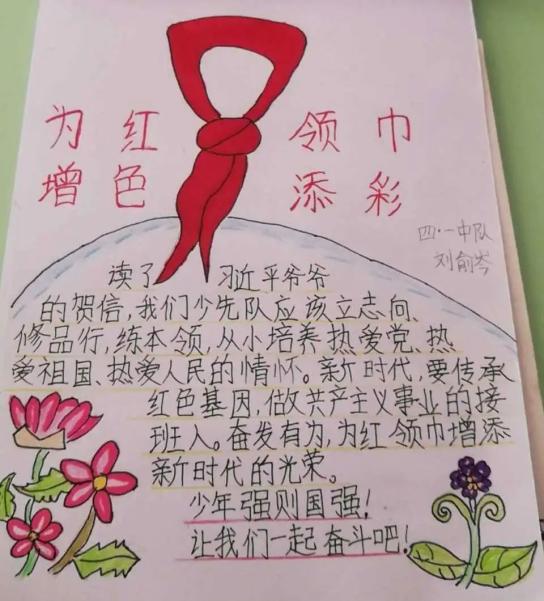 为红领巾
增色添彩
四·一中队
刘俞岑
读了习近平爷爷
的贺信,我们少先队应该立志向、
修品行,练本领,从小培养热爱党、热
爱祖国、热爱人民的情怀。新时代,要传承
红色基因,做共产主义事业的接
班人。奋发有为,为红领巾增添
新时代的光荣。
少年强则国强!
让我们一起奋斗吧!